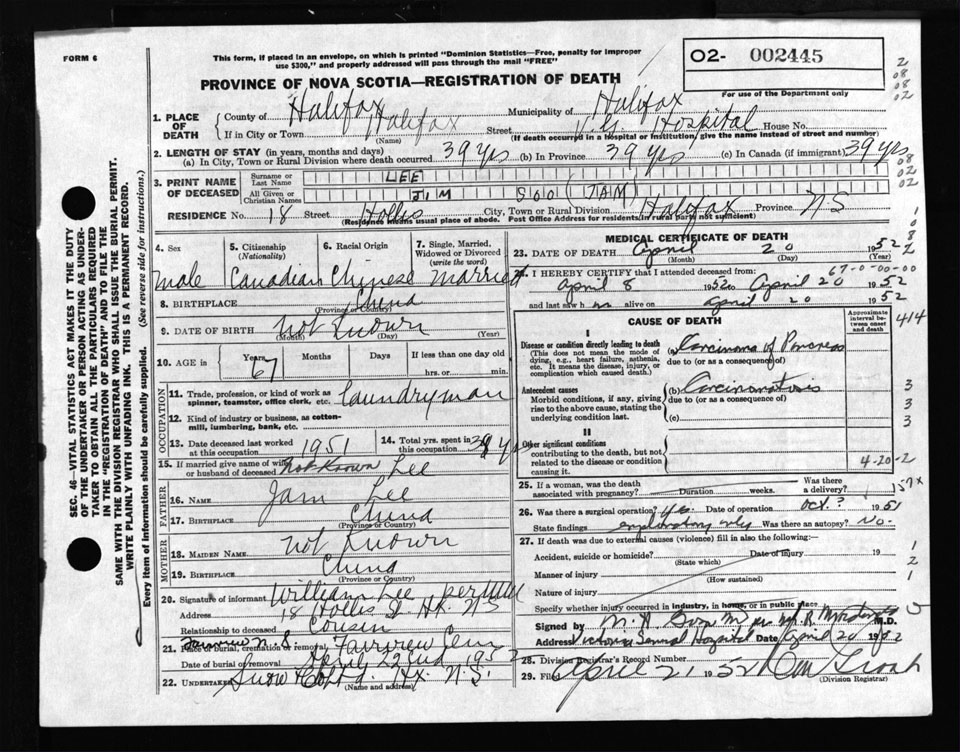 FORM 6
This form, if placed in an envelope, on which is printed "Dominion Statistics—Free, penalty for improper
use $300," and properly addressed will pass through the mail "FREE"
PROVINCE OF NOVA SCOTIA—REGISTRATION OF DEATH
02- 002445
For use of the Department only
1. PLACE OF DEATH
County of Halifax Municipality of Halifax
If in City or Town Halifax Street Hospital House No.
(Name) (If death occurred in a Hospital or Institution, give the name instead of street and number)
2. LENGTH OF STAY (in years, months and days)
(a) In City, Town or Rural Division where death occurred 39 yrs (b) In Province 39 yrs (c) In Canada (if immigrant) 39 yrs
3. PRINT NAME OF DECEASED
Surname or Last Name LEE
All Given or Christian Names JIM SOO (JAM)
RESIDENCE No. 18 Street Hollis City, Town or Rural Division Halifax Province NS
(Residence means usual place of abode. Post Office Address for residents in rural parts not sufficient)
4. Sex
male
5. Citizenship
(Nationality)
Canadian
6. Racial Origin
Chinese
7. Single, Married,
Widowed or Divorced
(write the word)
Married
8. BIRTHPLACE China
(Province or Country)
9. DATE OF BIRTH Not Known
(Month) (Day) (Year)
10. AGE in Years 67 Months Days If less than one day old
hrs. or min.
OCCUPATION
11. Trade, profession, or kind of work as
spinner, teamster, office clerk, etc. Laundryman
12. Kind of industry or business, as cotton-
mill, lumbering, bank, etc.
13. Date deceased last worked
at this occupation 1951
14. Total yrs. spent in
this occupation 39 yrs
15. If married give name of wife
or husband of deceased Not Known Lee
FATHER
16. NAME Jam Lee
17. BIRTHPLACE China
(Province or Country)
MOTHER
18. MAIDEN NAME Not Known
19. BIRTHPLACE China
(Province or Country)
20. Signature of informant William Lee per
Address 18 Hollis St. Hx. N.S
Relationship to deceased Cousin
21. Place of burial, cremation or removal, Fairview N.S. Fairview Cem
Date of burial or removal April 22nd 1952
22. UNDERTAKER Snow & Co Ltd. Hx. N.S.
(Name and address)
MEDICAL CERTIFICATE OF DEATH
23. DATE OF DEATH April 20 1952
(Month) (Day) (Year)
67-0-00-00
I HEREBY CERTIFY that I attended deceased from:
April 8 1952 to April 20 1952
and last saw him alive on April 20 1952
CAUSE OF DEATH
Approximate
interval be-
tween onset
and death
I
Disease or condition directly leading to death
(This does not mean the mode of
dying, e.g., heart failure, asthenia,
etc. It means the disease, injury, or
complication which caused death.)
(a) Carcinoma of Pancreas
due to (or as a consequence of)
Antecedent causes
Morbid conditions, if any, giving
rise to the above cause, stating the
underlying condition last.
(b) Carcinomatosis
due to (or as a consequence of)
(c)
II
Other significant conditions
contributing to the death, but not
related to the disease or condition
causing it.
4-20-2
25. If a woman, was the death
associated with pregnancy? Duration weeks. Was there
a delivery?
157x
26. Was there a surgical operation? Yes. Date of operation Oct.? 1951
State findings exploratory only Was there an autopsy? No.
27. If death was due to external causes (violence) fill in also the following:—
Accident, suicide or homicide? Date of injury 19
(State which)
Manner of injury
(How sustained)
Nature of injury
Specify whether injury occurred in industry, in home, or in public place
Signed by M.D.
Address Victoria General Hospital Date April 20 1952
28. Division Registrar's Record Number
29. Filed April 21 1952
(Division Registrar)
2
08
08
02
08
02
02
1
0
8
2
414
3
3
3
1
2
1
5
SEC. 46—VITAL STATISTICS ACT MAKES IT THE DUTY
OF THE UNDERTAKER OR PERSON ACTING AS UNDER-
TAKER TO OBTAIN ALL THE PARTICULARS REQUIRED
IN THE "REGISTRATION OF DEATH" AND TO FILE THE
SAME WITH THE DIVISION REGISTRAR WHO SHALL ISSUE THE BURIAL PERMIT.
WRITE PLAINLY WITH UNFADING INK. THIS IS A PERMANENT RECORD.
Every item of information should be carefully supplied. (See reverse side for instructions.)